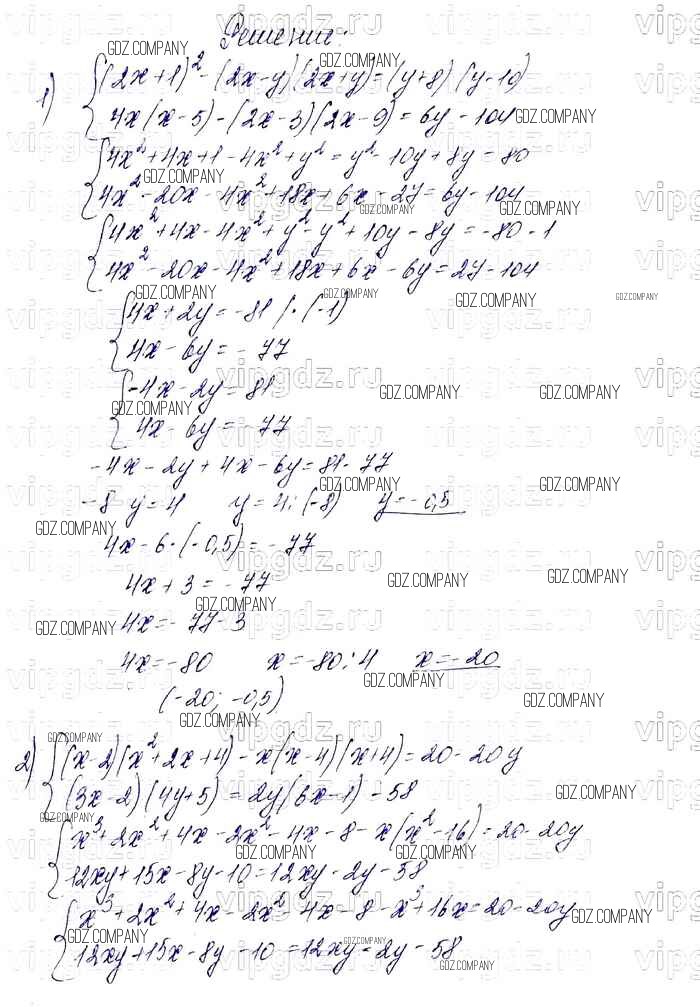 Решение:
1) (2x+1)² - (2x-y)(2x+y) = (y+8)(y-10)
4x(x-5) - (2x-3)(2x-9) = 6y - 104
4x² + 4x + 1 - 4x² + y² = y² - 10y + 8y - 80
4x² - 20x - 4x² + 18x + 6x - 27 = 6y - 104
4x² + 4x - 4x² + y² - y² + 10y - 8y = -80 - 1
4x² - 20x - 4x² + 18x + 6x - 6y = 27 - 104
4x + 2y = -81 | · (-1)
4x - 6y = -77
-4x - 2y = 81
4x - 6y = -77
-4x - 2y + 4x - 6y = 81 - 77
-8y = 4 y = 4 : (-8) y = -0,5
4x - 6 · (-0,5) = -77
4x + 3 = -77
4x = -77 - 3
4x = -80 x = -80 : 4 x = -20
(-20; -0,5)
2) (x-2)(x²+2x+4) - x(x-4)(x+4) = 20 - 20y
(3x-2)(4y+5) = 2y(6x-1) - 58
x³ + 2x² + 4x - 2x² - 4x - 8 - x(x² - 16) = 20 - 20y
12xy + 15x - 8y - 10 = 12xy - 2y - 58
x³ + 2x² + 4x - 2x² - 4x - 8 - x³ + 16x = 20 - 20y
12xy + 15x - 8y - 10 = 12xy - 2y - 58